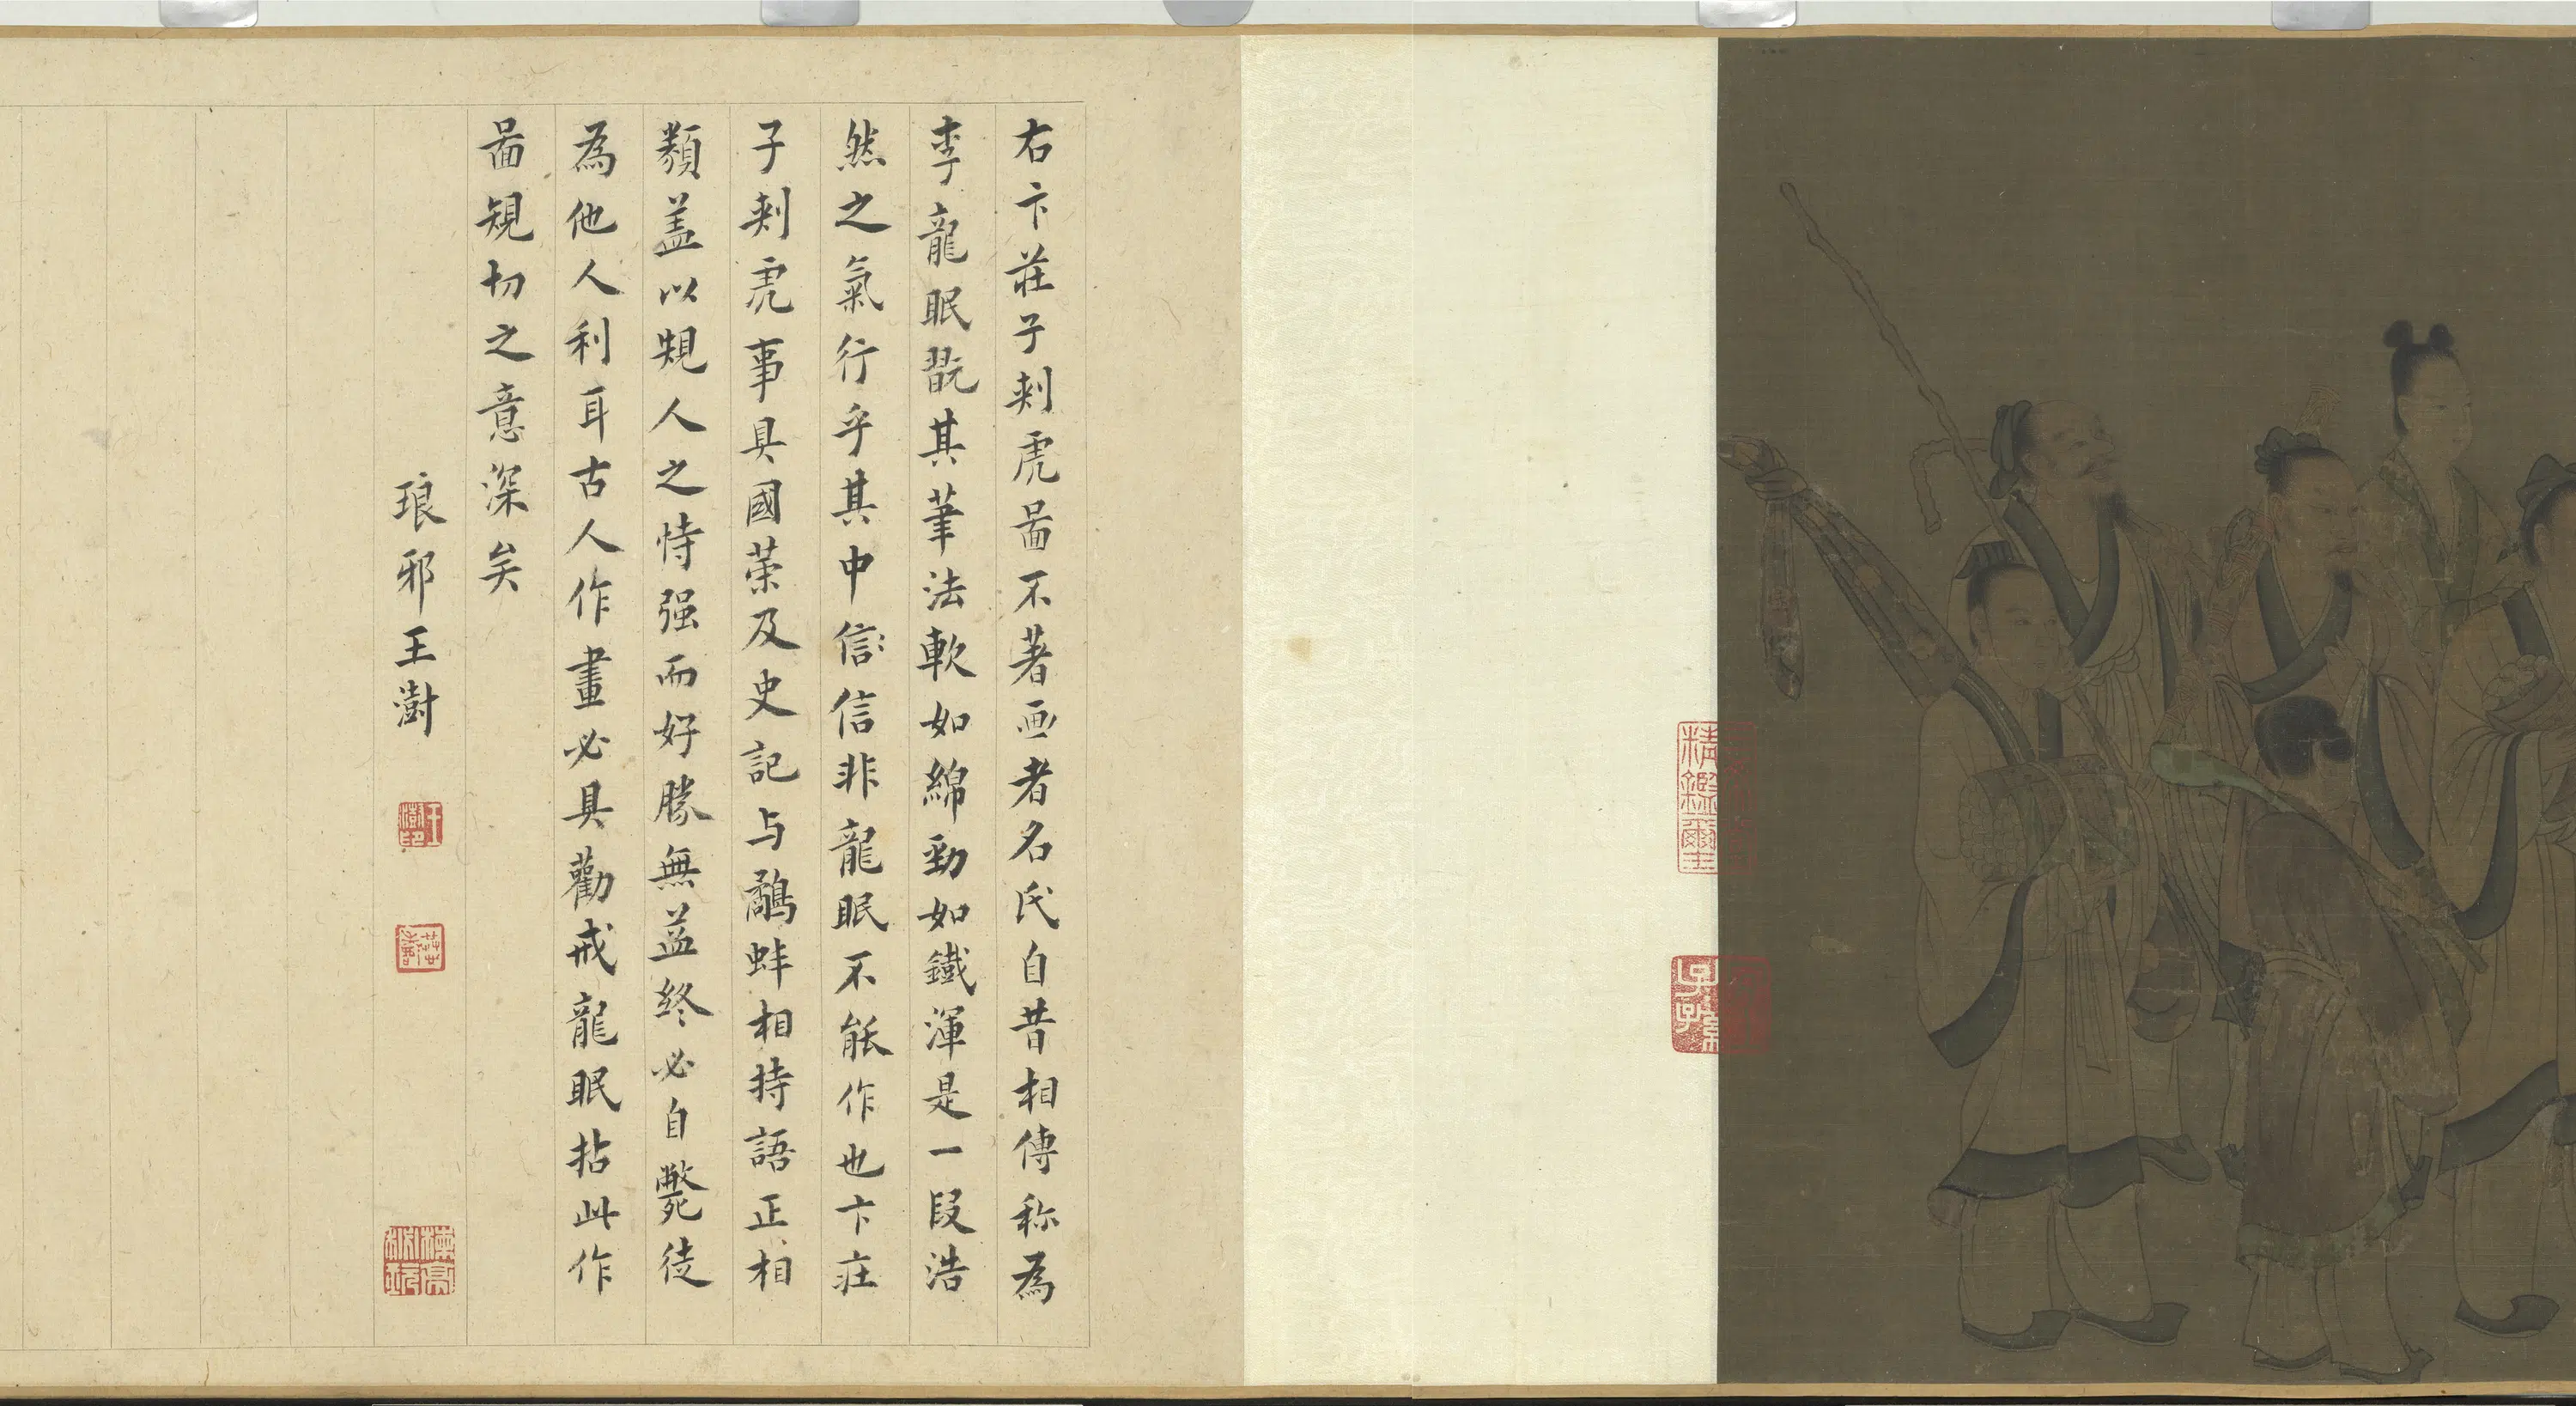 右卞莊子刾虎啚不著画者名氏自昔相傳称為
李龍眠翫其筆法軟如綿勁如鐵渾是一段浩
然之氣行乎其中信信非龍眠不能作也卞莊
子刾虎事具國策及史記与鷸蚌相持語正相
類盖以規人之恃强而好勝無益終必自斃徒
為他人利耳古人作畫必具勸戒龍眠拈此作
啚規切之意深矣
琅邪王澍
王澍印
精鑑爾主